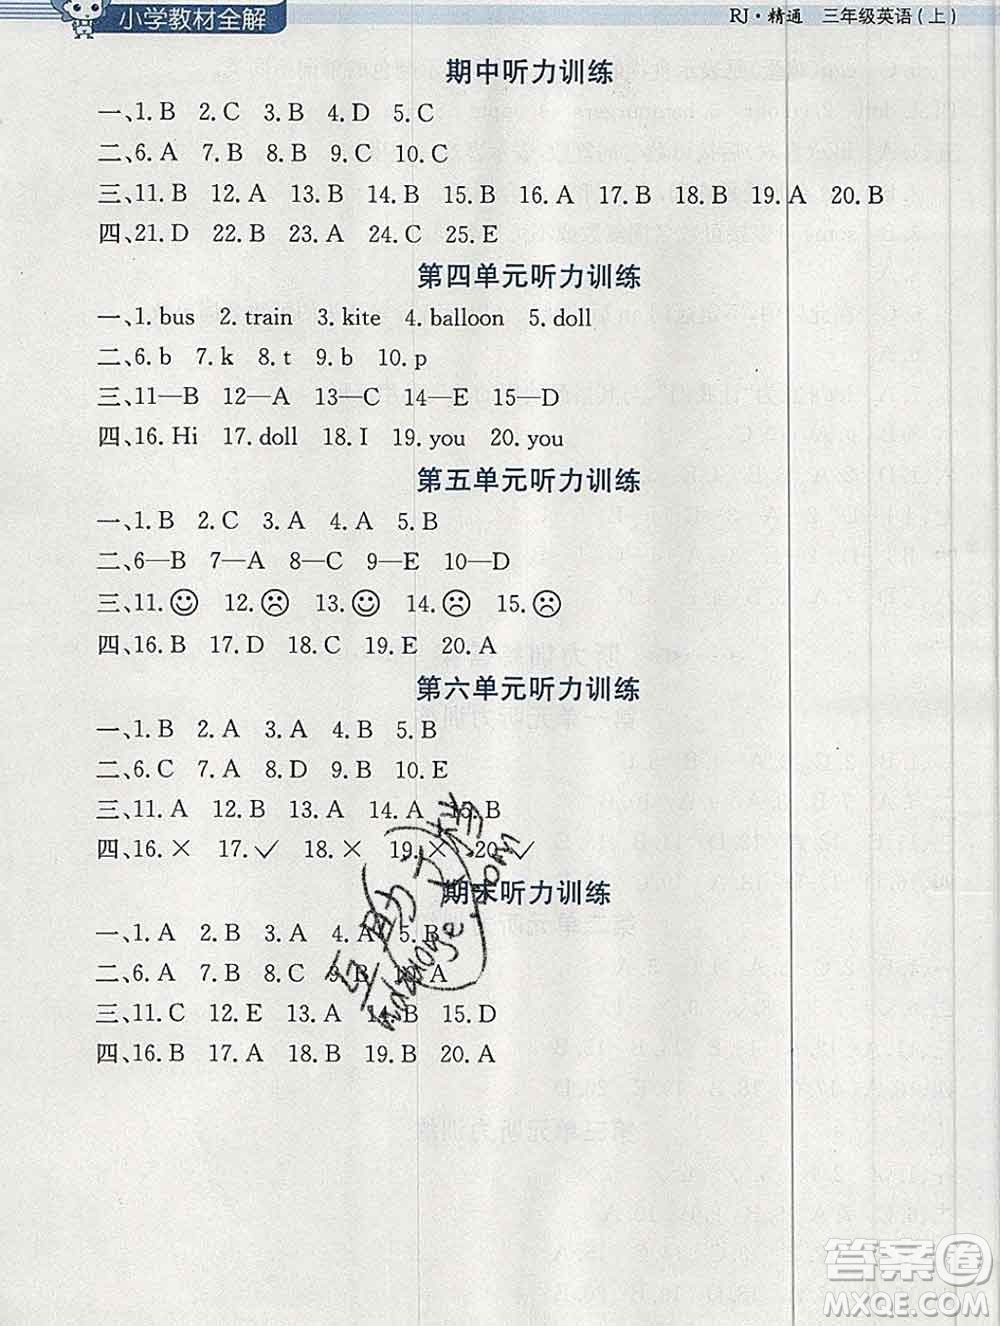 小学教材全解
RJ·精通 三年级英语(上)
期中听力训练
一、1. B 2. C 3. B 4. D 5. C
二、6. A 7. B 8. B 9. C 10. C
三、11. B 12. A 13. B 14. B 15. B 16. A 17. B 18. B 19. A 20. B
四、21. D 22. B 23. A 24. C 25. E
第四单元听力训练
一、1. bus 2. train 3. kite 4. balloon 5. doll
二、6. b 7. k 8. t 9. b 10. p
三、11—B 12—A 13—C 14—E 15—D
四、16. Hi 17. doll 18. I 19. you 20. you
第五单元听力训练
一、1. B 2. C 3. A 4. A 5. B
二、6—B 7—A 8—C 9—E 10—D
三、11. ☺ 12. ☹ 13. ☺ 14. ☹ 15. ☹
四、16. B 17. D 18. C 19. E 20. A
第六单元听力训练
一、1. B 2. A 3. A 4. B 5. B
二、6. C 7. A 8. D 9. B 10. E
三、11. A 12. B 13. A 14. A 15. B
四、16. × 17. ✓ 18. × 19. × 20. ✓
期末听力训练
一、1. A 2. B 3. A 4. A 5. B
二、6. A 7. B 8. C 9. B 10. A
三、11. C 12. E 13. A 14. B 15. D
四、16. B 17. A 18. B 19. B 20. A
答案圈
MXQE.COM